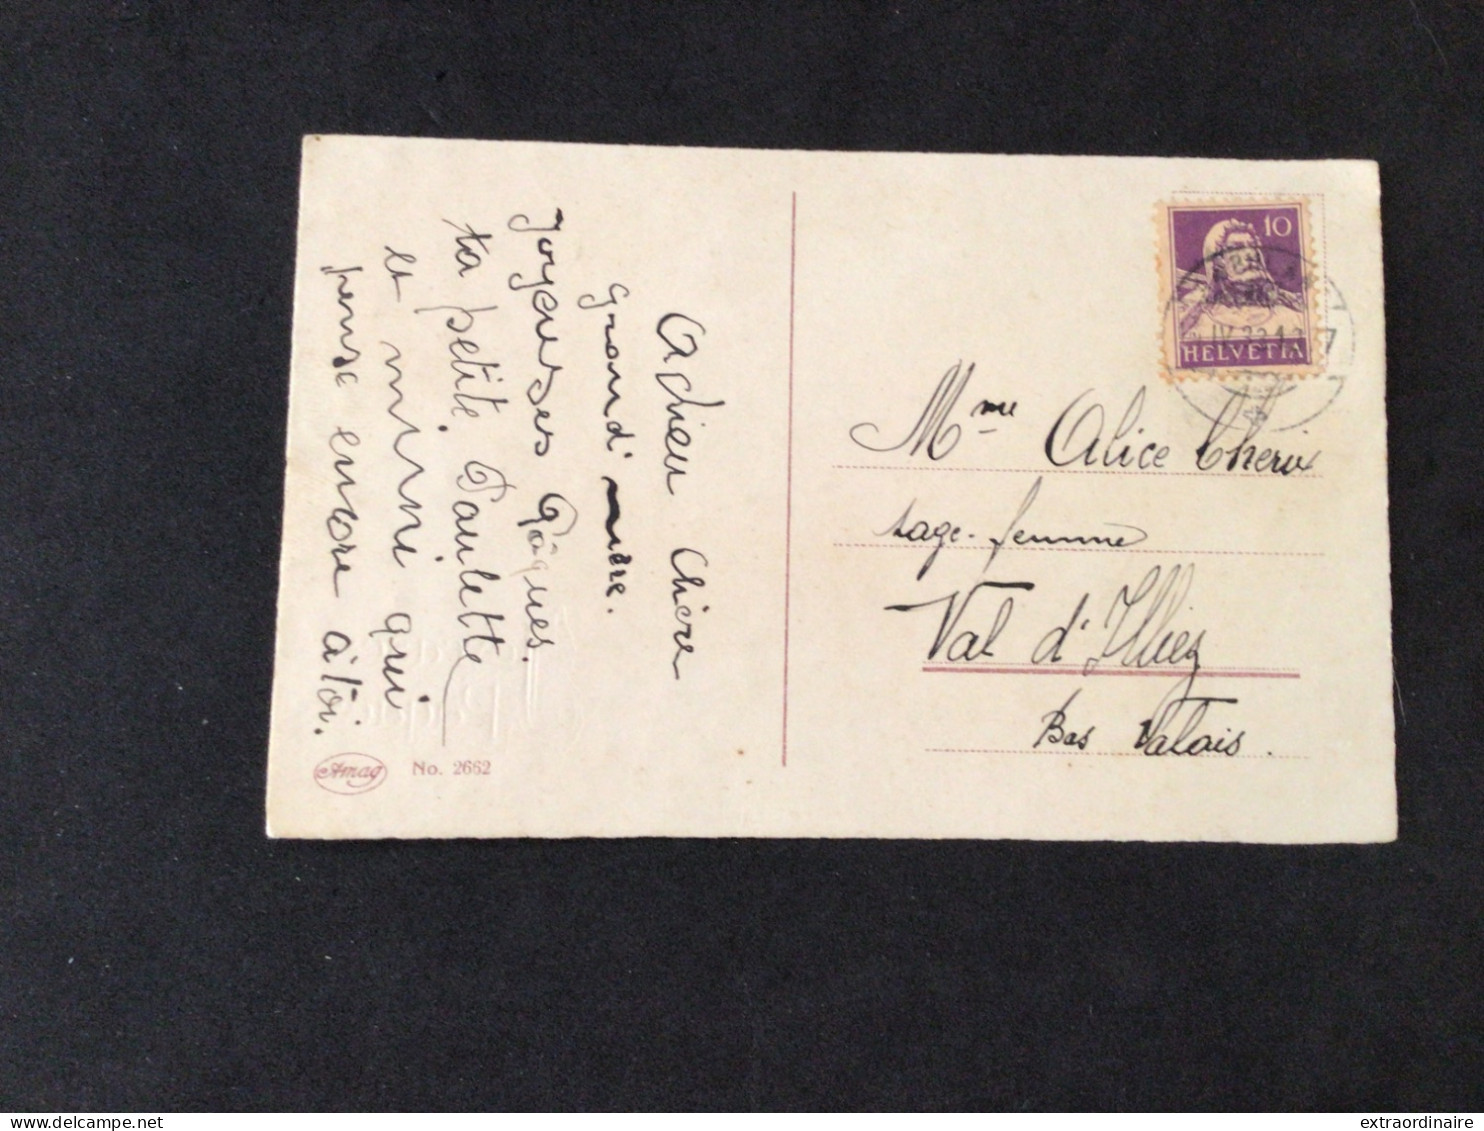 Adieu Chère
Grand' mère.
Joyeuses Pâques.
ta petite Paulette
et mimi qui
pense encore à toi.
Amag No. 2662
10
HELVETIA
IV.32
Mme Alice Cherix
sage-femme
Val d'Illiez
Bas Valais.
extraordinaire